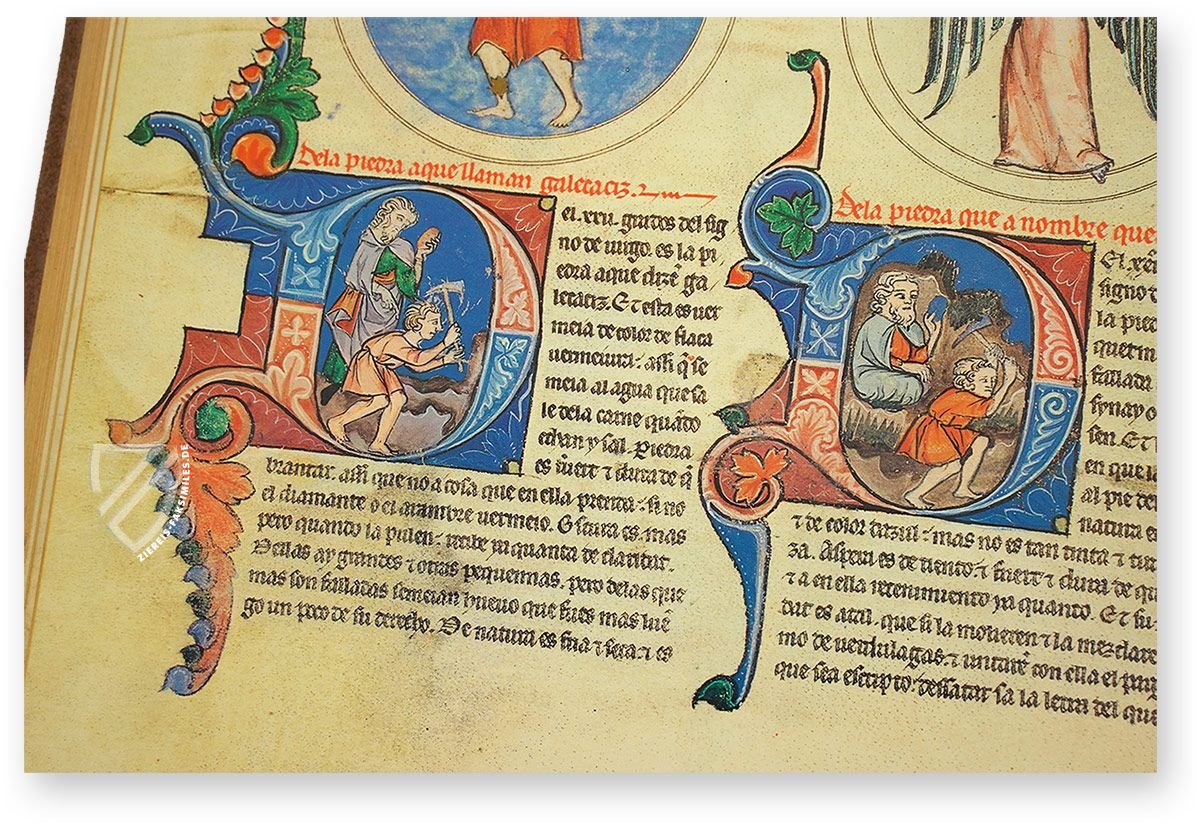 Dela piedra aque llaman galetaciz.
el .xxii. grados del sig
no de uirgo. es la pi
edra aque dizen ga
letaciz. Et esta es uer
meia de color de flaca
uermeiura. assi q̃ se
meia al agua que sa
le dela carne quãdo
echan y sal. Piedra
es fuert ⁊ dura de q̃
brantar. assi que no a cosa que en ella prenda. si no
el diamante o el arambre uermeio. Oscura es. mas
pero quando la pulen. recibe ya quanta de claridat.
Dellas ay grandes ⁊ otras pequennas. pero delas que
mas son falladas semeian hueuo que fues mas luẽ
go un poco de su derecho. De natura es fria ⁊ seca. ⁊ es
Dela piedra que a nombre que
El .x
signo d
la pied
quer m
fallada
se y o
sen. Et
en que l
al pie de
natura e
⁊ de color dazul. mas no es tan tinta ⁊ tur
za. Aspera es de tiento. ⁊ fuert ⁊ dura de qu
⁊ a en ella retenimiento ya quanto. Et su
dat es atal. que si la molieren ⁊ la mezclare
mo de uerdulagas. ⁊ untarẽ con ella el purg
que sea escripto. dessatar sa la letra del que
ZIEREIS FAKSIMILES.DE